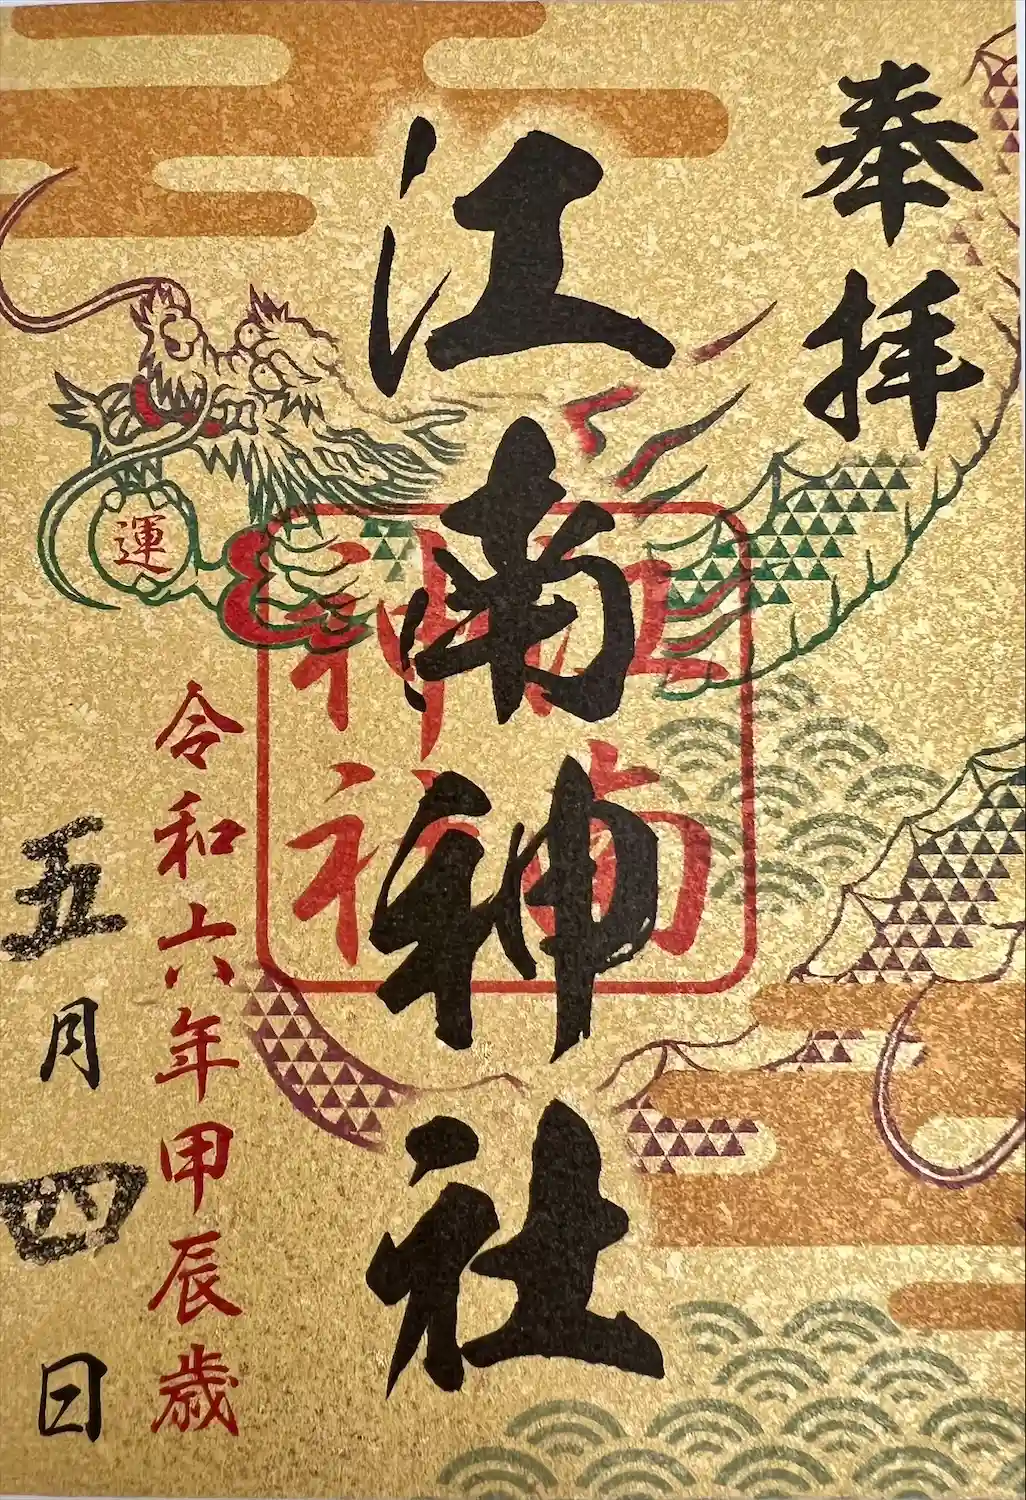 奉拝
江南神社
江南神社
運
令和六年甲辰歳
五月四日